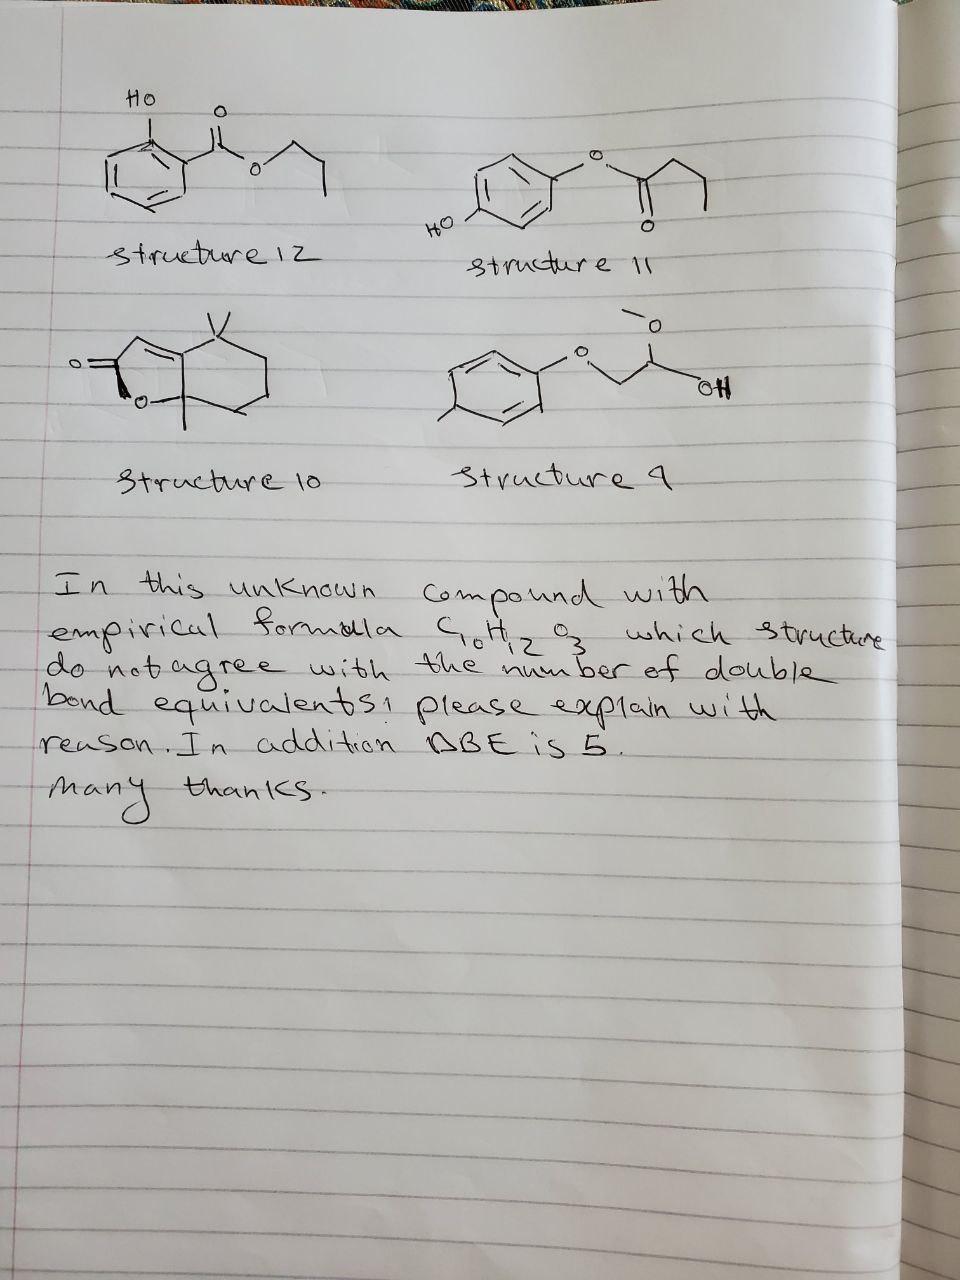 HO
O
O
structure 12
O
HO
O
structure 11
O
O
structure 10
O
O
OH
structure 9
In this unknown compound with
empirical formulla C10H12O3 which structure
do not agree with the number of double
bond equivalents, please explain with
reason. In addition DBE is 5.
many thanks.